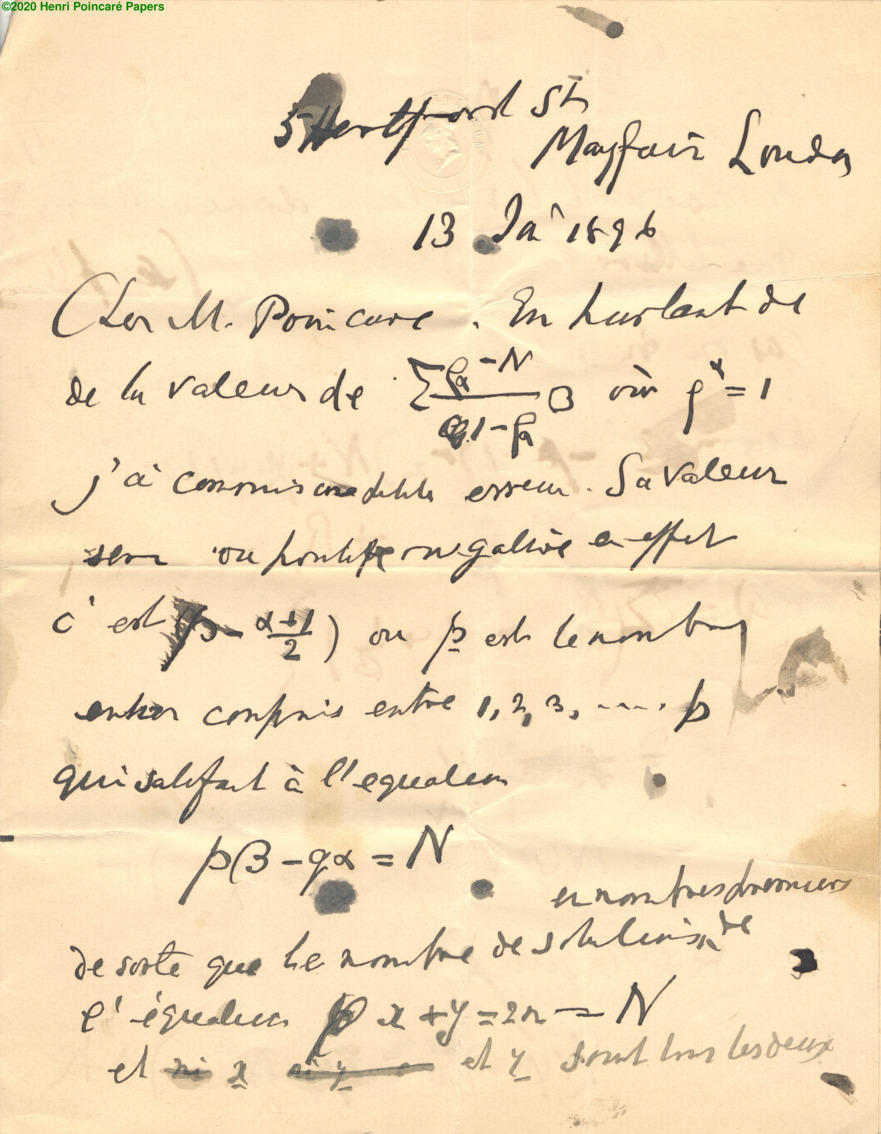 ©2020 Henri Poincaré Papers
5 Hertford St
Mayfair London
13 Jan 1896
Cher M. Poincare. En parlant de
de la valeur de Σ ρα^-N / 1-ρα^β où ρ^α = 1
j'ai commis une erreur. Sa valeur
sera ou positive ou negative en effet
c'est (p - α+1/2) ou p est le nombre
entier compris entre 1, 2, 3, .... p
qui satisfait à l'equation
pβ - qα = N
en nombres premiers
de sorte que le nombre de solutions de
l'équation x + y = 2n = N
et x et y sont tous les deux